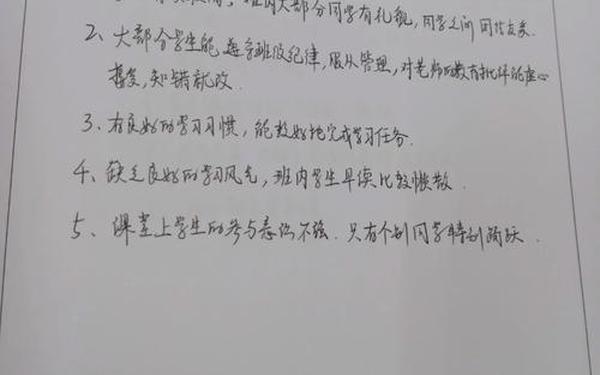 班内大部分同学有礼貌,同学之间团结友爱.
2、大部分学生能遵守班级纪律,服从管理,对老师的教育批评能虚心
接受,知错就改.
3、有良好的学习习惯,能较好地完成学习任务.
4、缺乏良好的学习风气,班内学生早读比较懒散.
5、课堂上学生的参与意识不强.只有个别同学特别踊跃.